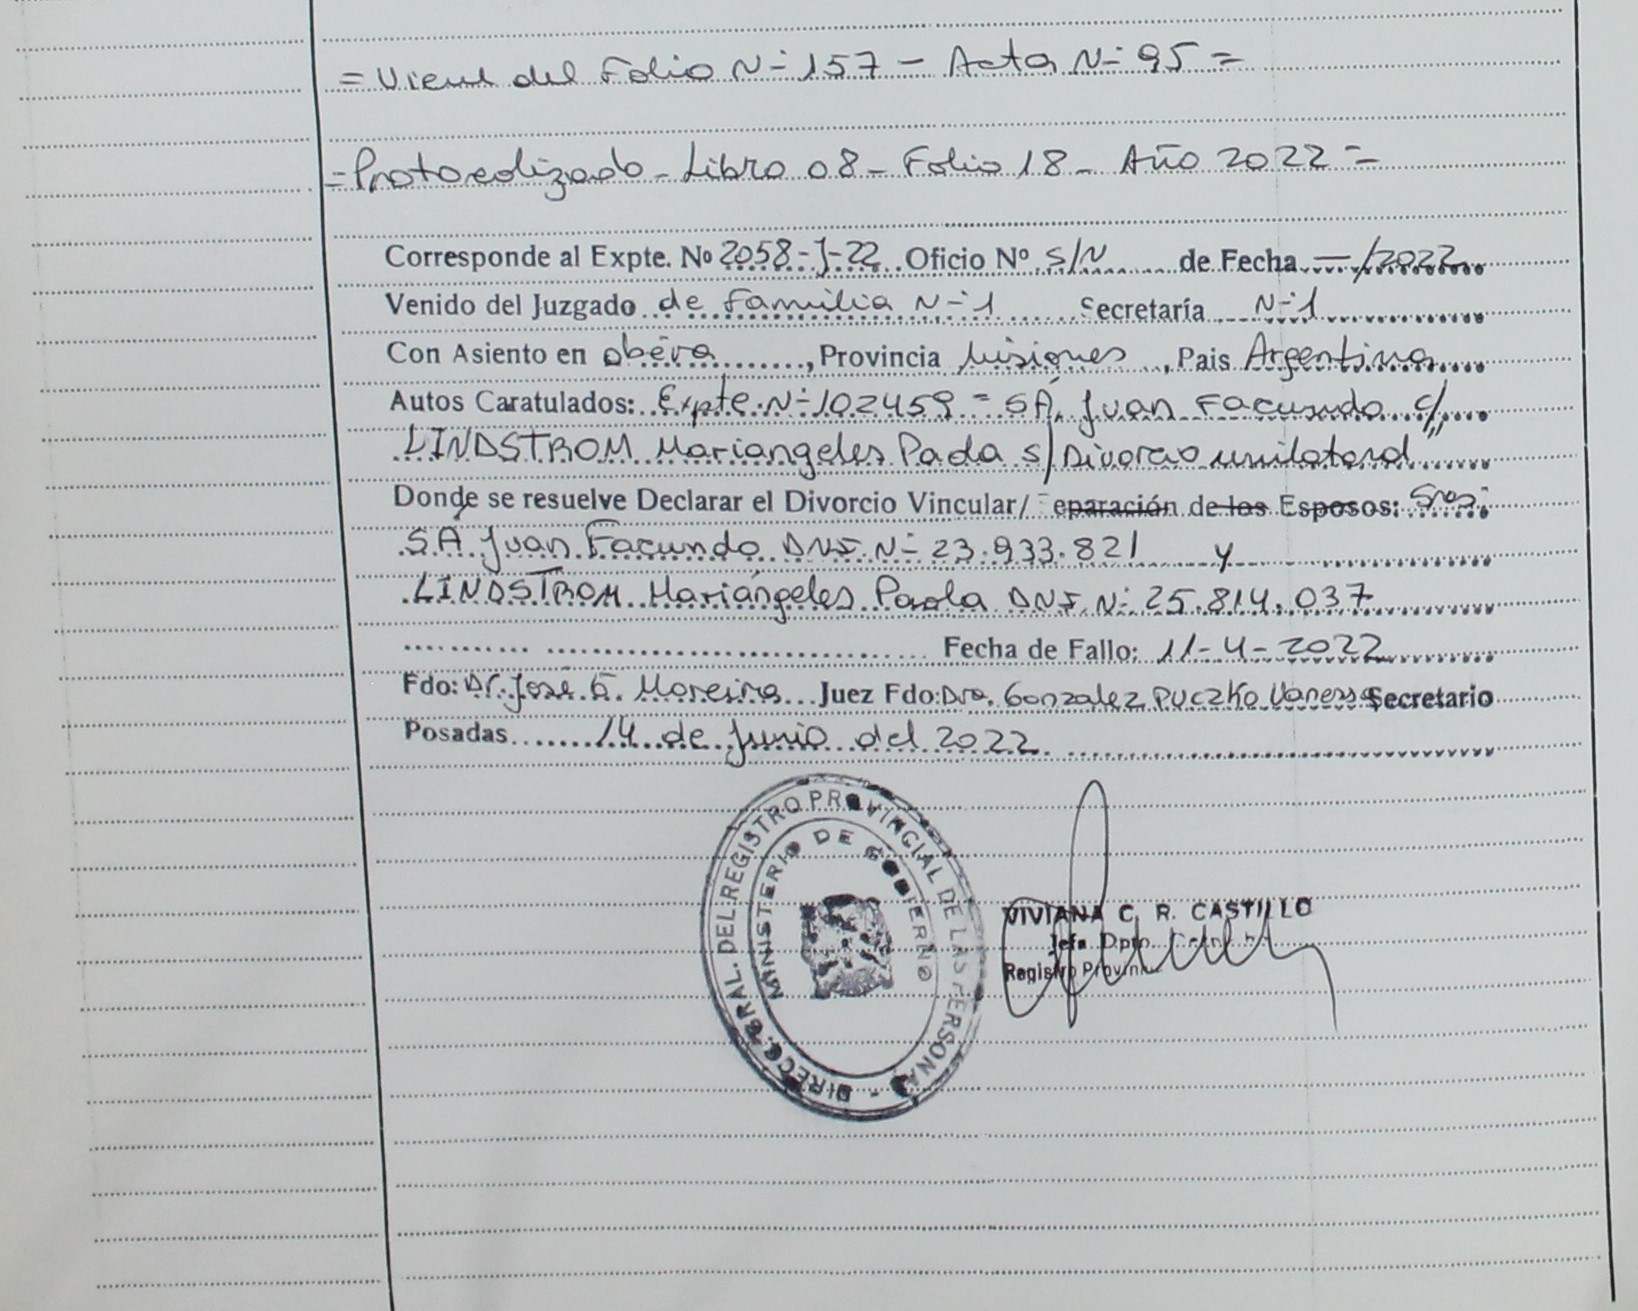 = Viene del Folio N- 157 - Acta N- 95 =
= Protocolizado - Libro 08 - Folio 18 - Año 2022 =
Corresponde al Expte. Nº 2058-J-22 Oficio Nº S/N de Fecha —/2022
Venido del Juzgado de Familia N-1 Secretaría N-1
Con Asiento en Oberá, Provincia Misiones, Pais Argentina
Autos Caratulados: Expte. N- 102459 = SÁ, Juan Facundo c/
LINDSTROM Mariangeles Paola s/ Divorcio unilateral"
Donde se resuelve Declarar el Divorcio Vincular/ eparación de los Esposos: Sres:
SÁ Juan Facundo DNI N- 23.933.821 y
LINDSTROM Mariángeles Paola DNI N- 25.814.037
Fecha de Fallo: 11-4-2022
Fdo: Dr. Jose G. Moreira Juez Fdo: Dra. Gonzalez Puczko Vanessa Secretario
Posadas 14 de Junio del 2022
DIRECC. GRAL. DEL REGISTRO PROVINCIAL DE LAS PERSONAS -
MINISTERIO DE GOBIERNO
VIVIANA C. R. CASTILLO
Jefa Dpto.
Registro